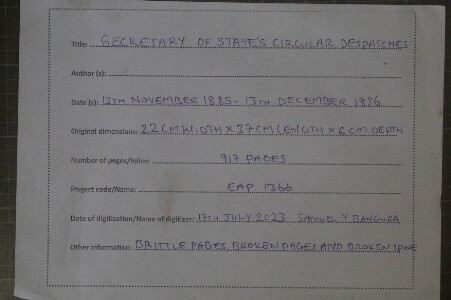 Title: SECRETARY OF STATE'S CIRCULAR DESPATCHES
Author (s):
Date (s): 13TH NOVEMBER 1885 - 13TH DECEMBER 1886
Original dimensions: 22CM WIDTH X 37CM LENGTH X 6CM DEPTH
Number of pages/folios: 917 PAGES
Project code/Name: EAP 1366
Date of digitization/Name of digitizer: 17TH JULY 2023 SAMUEL Y BANGURA
Other information: BRITTLE PAGES, BROKEN PAGES AND BROKEN SPINE